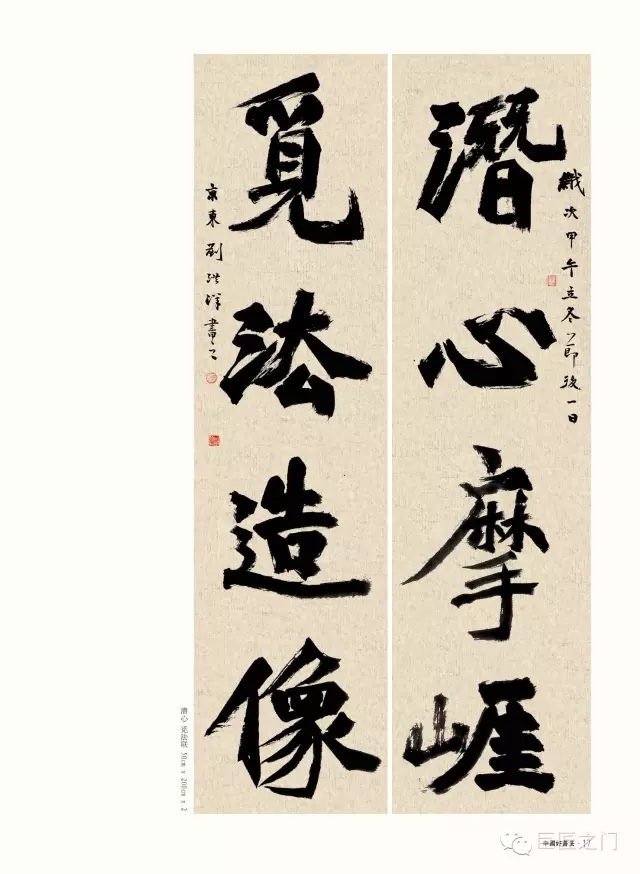 潛心摩崖
歲次甲午立冬節後一日
覓法造像
京東劉洪洋書之
潜心 觅法联 50cm x 200cm x 2
中國好書畫·17
巨匠之门